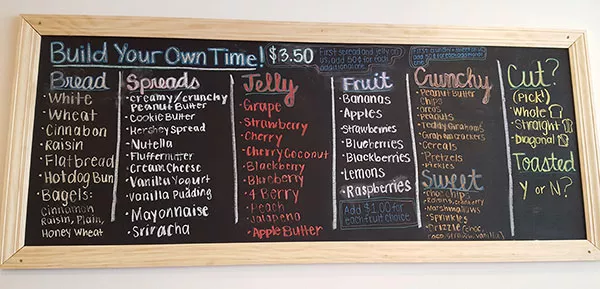 Build Your Own Time! $3.50
First spread and jelly on
us, add 50¢ for each
additional one.
Bread
White
Wheat
Cinnabon
Raisin
Flatbread
Hotdog Bun
Bagels:
Cinnamon
Raisin, Plain,
Honey Wheat
Spreads
creamy/crunchy
Peanut Butter
Cookie Butter
Hershey Spread
Nutella
Fluffernutter
Cream Cheese
Vanilla Yogurt
Vanilla Pudding
Mayonnaise
Sriracha
Jelly
Grape
Strawberry
Cherry
Cherry Coconut
Blackberry
Blueberry
4 Berry
Peach
Jalapeno
Apple Butter
Fruit
Bananas
Apples
Strawberries
Blueberries
Blackberries
Lemons
Raspberries
Add $1.00 for
each fruit choice
Crunchy
Peanut Butter
Chips
oreos
Peanuts
Teddy Grahams
Graham Crackers
Cereals
Pretzels
Pickles
Sweet
Choc Chip
Marshmallows
Sprinkles
Drizzle (choc,
Cut?
(Pick!)
Whole
Straight
Diagonal
Toasted
Y or N?